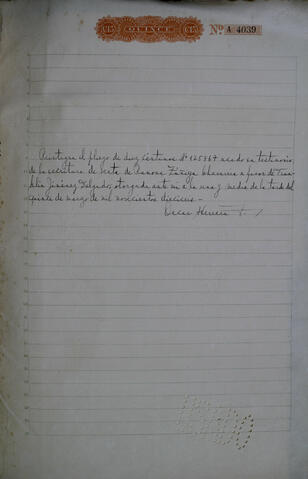 15 Cts. QUINCE Cts. 15
Nº A 4039
Reintegra el pliego de diez céntimos Nº 125367 usado en testimonio
de la escritura de venta de Ramona Zúñiga a favor de
Jiménez Delgado, otorgada ante mí a la una y media de la tarde del
quince de marzo de mil novecientos dieciseis.—
Oscar Herrera